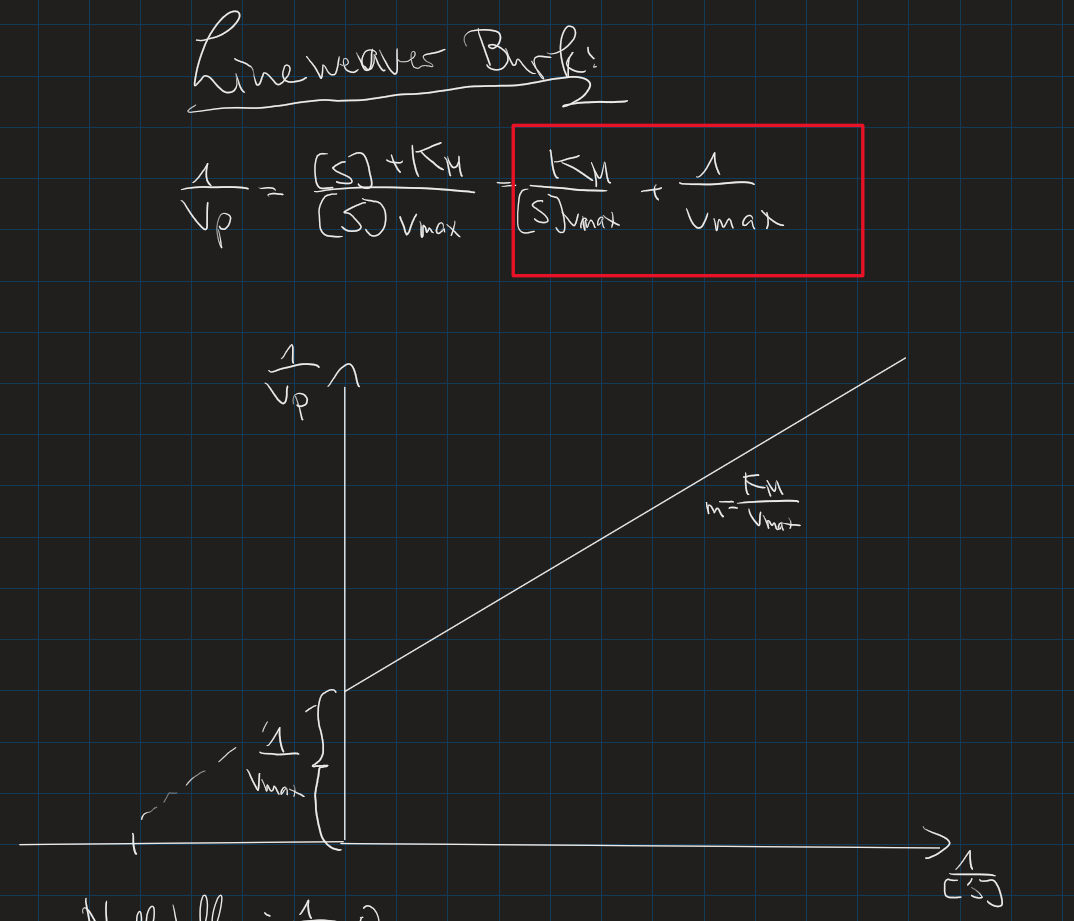 Lineweaver Burk:
1/Vp = ([S] + KM)/([S] Vmax) = KM/([S]Vmax) + 1/Vmax
1/Vp
m = KM/Vmax
1/Vmax
1/[S]